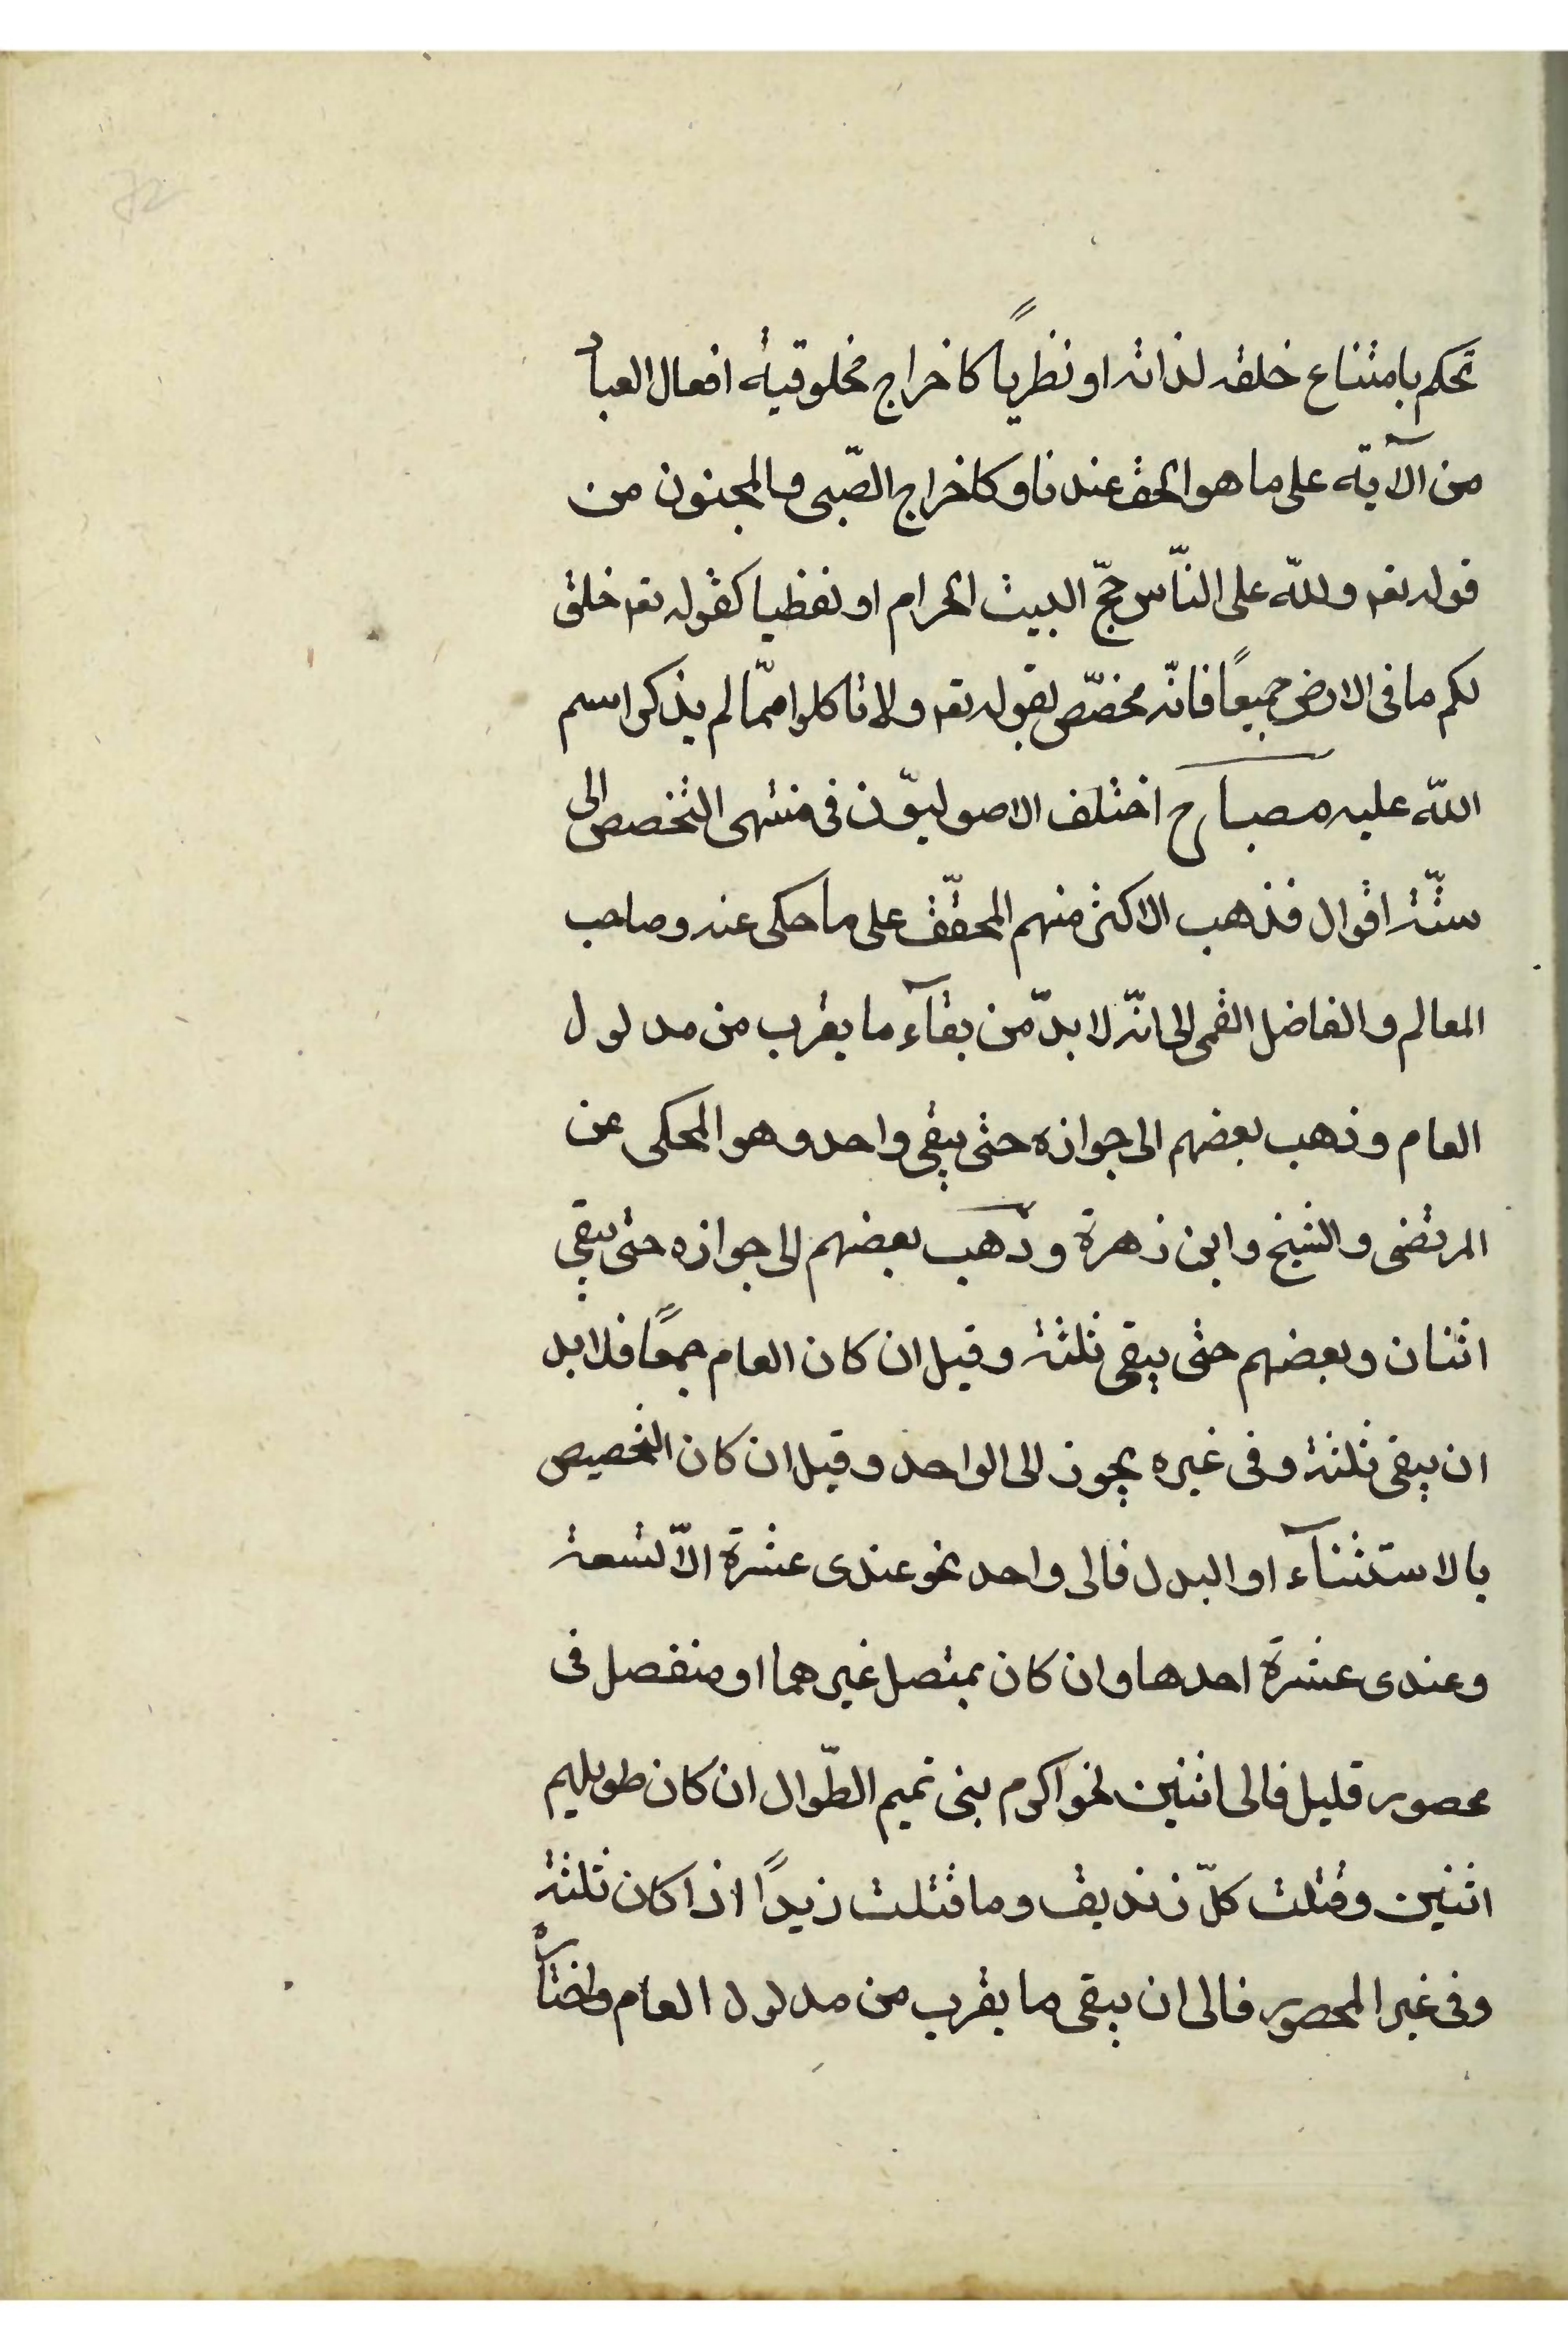 تحكم بامتناع خلقه لذاته او نظرياً كاخراج مخلوقية افعال العباد
من الآية على ما هو الحق عندنا وكاخراج الصّبى والمجنون من
قوله تعه وللّه على النّاس حجّ البيت الحرام او لفظيا كقوله تعه خلق
لكم ما فى الارض جميعاً فانّه مخصّص بقوله تعه ولا تاكلوا ممّا لم يذكر اسم
اللّه عليه مصباح اختلف الاصوليّون فى منتهى التخصص الى
ستّة اقوال فذهب الاكثر منهم المحقّق على ما حكى عنه وصاحب
المعالم والفاضل القمى الى انّه لا بدّ من بقآء ما يقرب من مدلول
العام وذهب بعضهم الى جوازه حتى يبقى واحد وهو المحكى عن
المرتضى والشيخ وابن زهرة وذهب بعضهم الى جوازه حتى يبقى
اثنان وبعضهم حتى يبقى ثلثة وقيل ان كان العام جمعاً فلا بد
ان يبقى ثلثة وفى غيره يجوز الى الواحد وقيل ان كان التخصيص
بالاستثنآء او البدل فالى واحد نحو عندى عشرة الّا تسعة
وعندى عشرة احدها وان كان بمتصل غيرهما او منفصل فى
محصور قليل فالى اثنين نحو اكرم بنى تميم الطّوال ان كان طويلهم
اثنين وقتلت كلّ زنديق وما قتلت زيداً اذا كان ثلثة
وفى غير المحصور فالى ان يبقى ما يقرب من مدلول العام واختاره